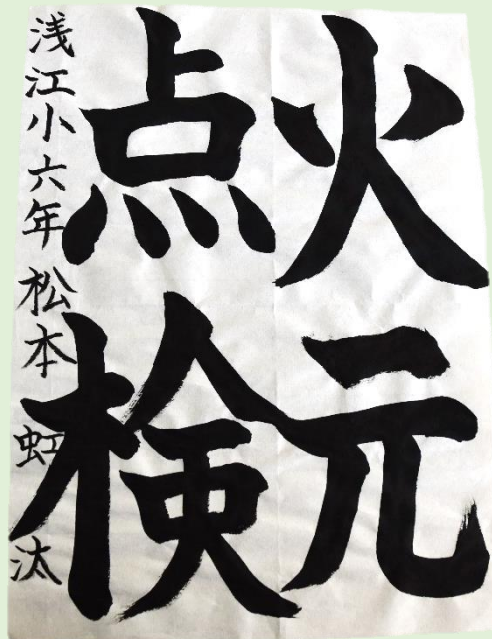 火元
点検
浅江小六年松本虹汰